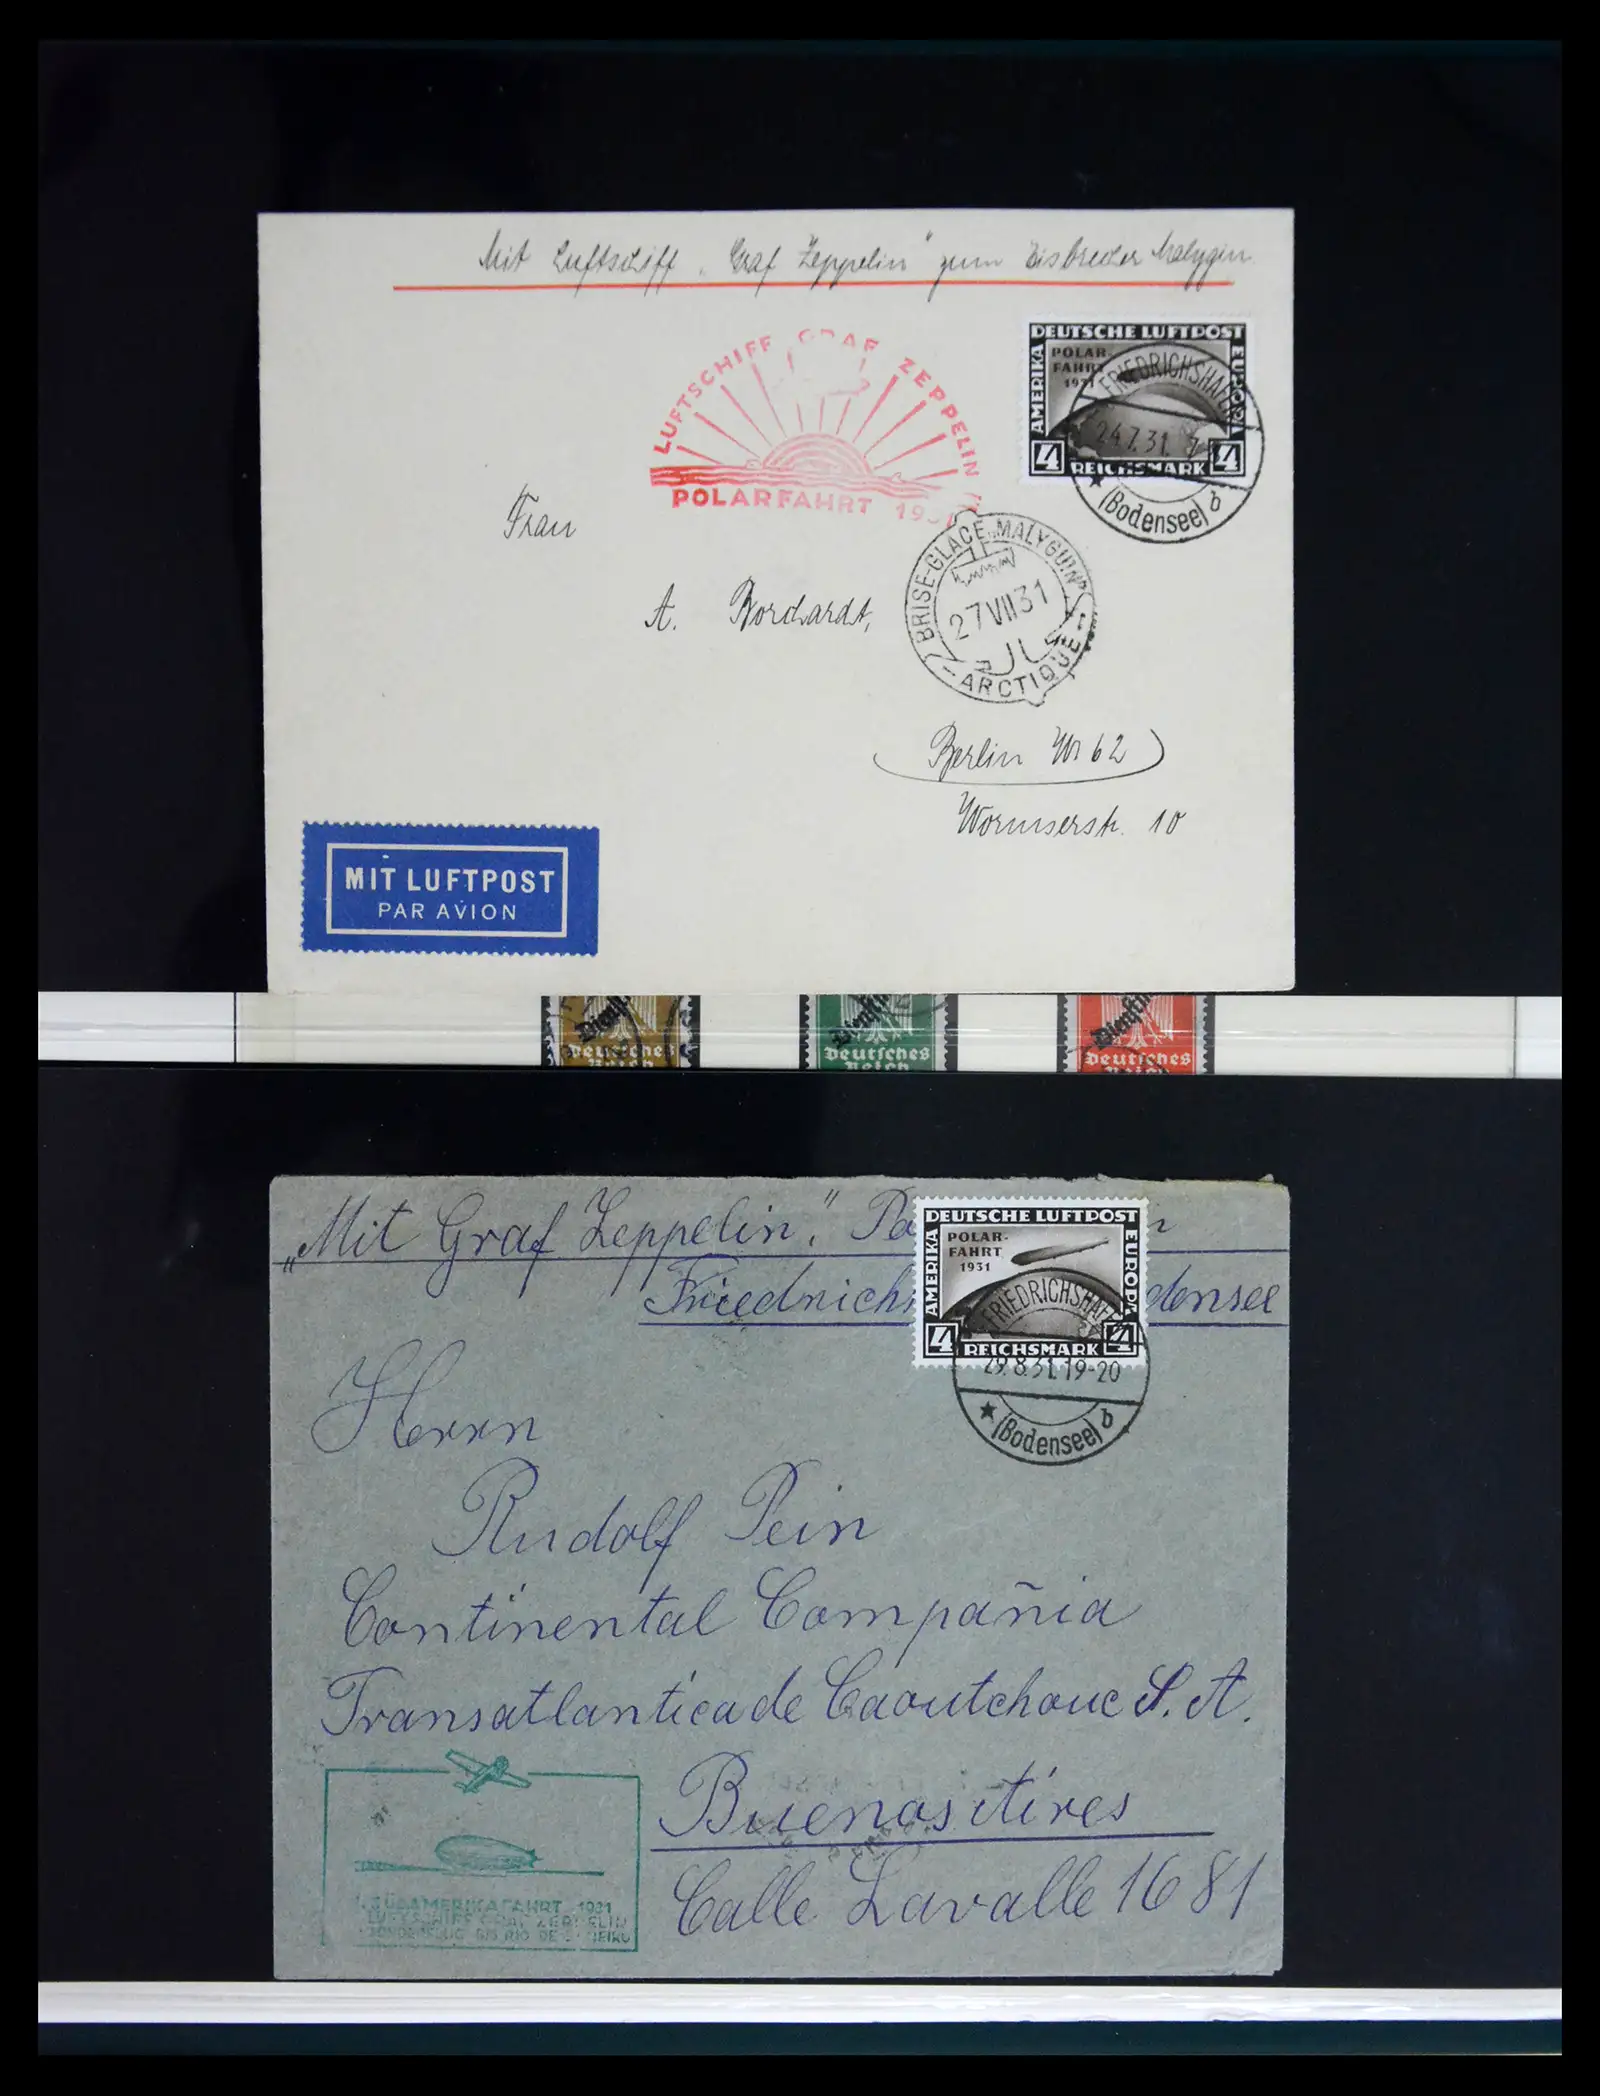 Mit Luftschiff „Graf Zeppelin“ zum Eisbrecher Malygin.
LUFTSCHIFF GRAF ZEPPELIN
POLARFAHRT 1931
DEUTSCHE LUFTPOST
AMERIKA
EUROPA
POLAR-
FAHRT
1931
4 REICHSMARK 4
FRIEDRICHSHAFEN
24.7.31.
(Bodensee) b
Frau
BRISE-GLACE „MALYGUIN”
27 VII 31
ARCTIQUE
A. Borchardt,
Berlin W 62
Wormserstr. 10
MIT LUFTPOST
PAR AVION
Dienst
Deutsches
Reich
Dienst
Deutsches
Reich
Dienst
Deutsches
Reich
„Mit Graf Zeppelin“.
DEUTSCHE LUFTPOST
AMERIKA
EUROPA
POLAR-
FAHRT
1931
4 REICHSMARK 4
FRIEDRICHSHAFEN
29.8.31.19-20
(Bodensee) b
Friedrichs densee
Herrn
Rudolf Pein
Continental Compañia
Transatlantica de Caoutchouc S. A.
Buenos Aires
Calle Lavalle 1681
SÜDAMERIKAFAHRT 1931
LUFTSCHIFF GRAF ZEPPELIN
SONDERFLUG BIS RIO DE JANEIRO